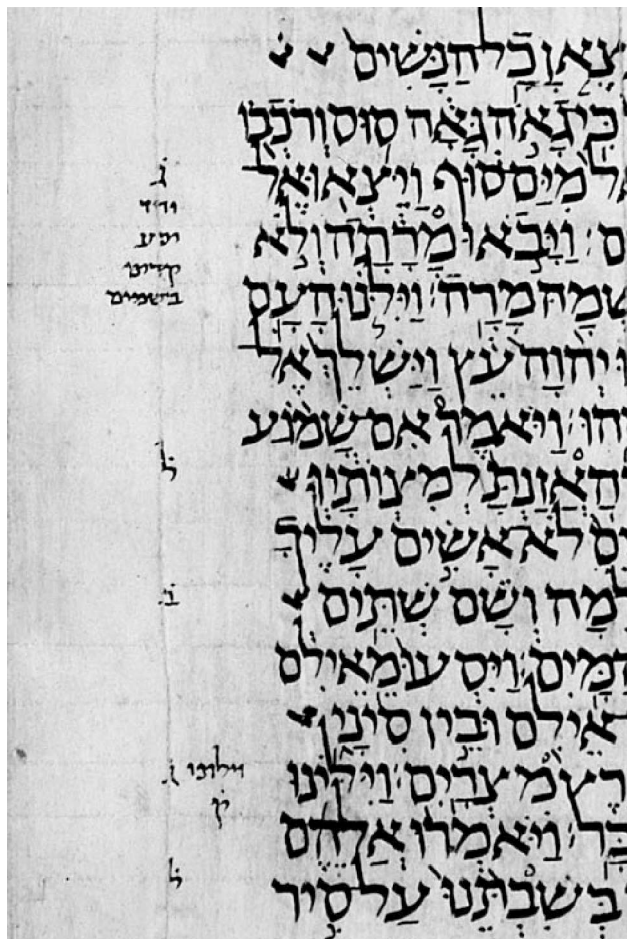 צֶאןָ כָל הַנָּשִׁים
כִּי גָאֹה גָּאָה סוּס וְרֹכְבוֹ
מִיַּם סוּף וַיֵּצְאוּ אֶל
ם׃ וַיָּבֹאוּ מָרָתָה וְלֹא
שְׁמָהּ מָרָה׃ וַיִּלֹּנוּ הָעָם
יְהוָה עֵץ וַיַּשְׁלֵךְ אֶל
הוּ׃ וַיֹּאמֶר אִם שָׁמוֹעַ
הַאֲזַנְתָּ לְמִצְוֹתָיו
ם לֹא אָשִׂים עָלֶיךָ
למָה וְשָׁם שְׁתֵּים
הַמָּיִם׃ וַיִּסְעוּ מֵאֵילִם
אֵילִם וּבֵין סִינָי
רֶץ מִצְרָיִם׃ וַיִּלֹּינוּ
בָּר׃ וַיֹּאמְרוּ אֲלֵהֶם
בְּשִׁבְתֵּנוּ עַל סִיר
ג
וירד
יפע
קדימו
בשמים
ל
ב
וילונו ג
ק
ל